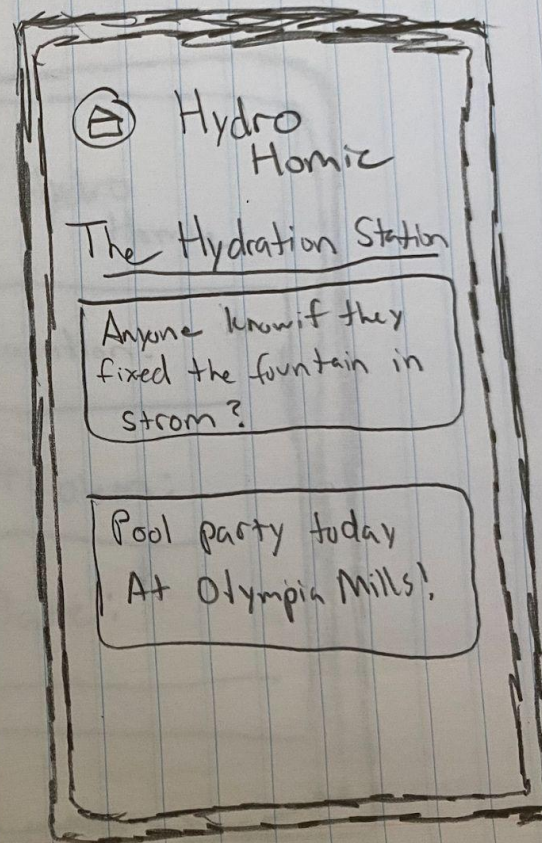 Hydro
Homie
The Hydration Station
Anyone know if they
fixed the fountain in
strom?
Pool party today
At Olympia Mills!